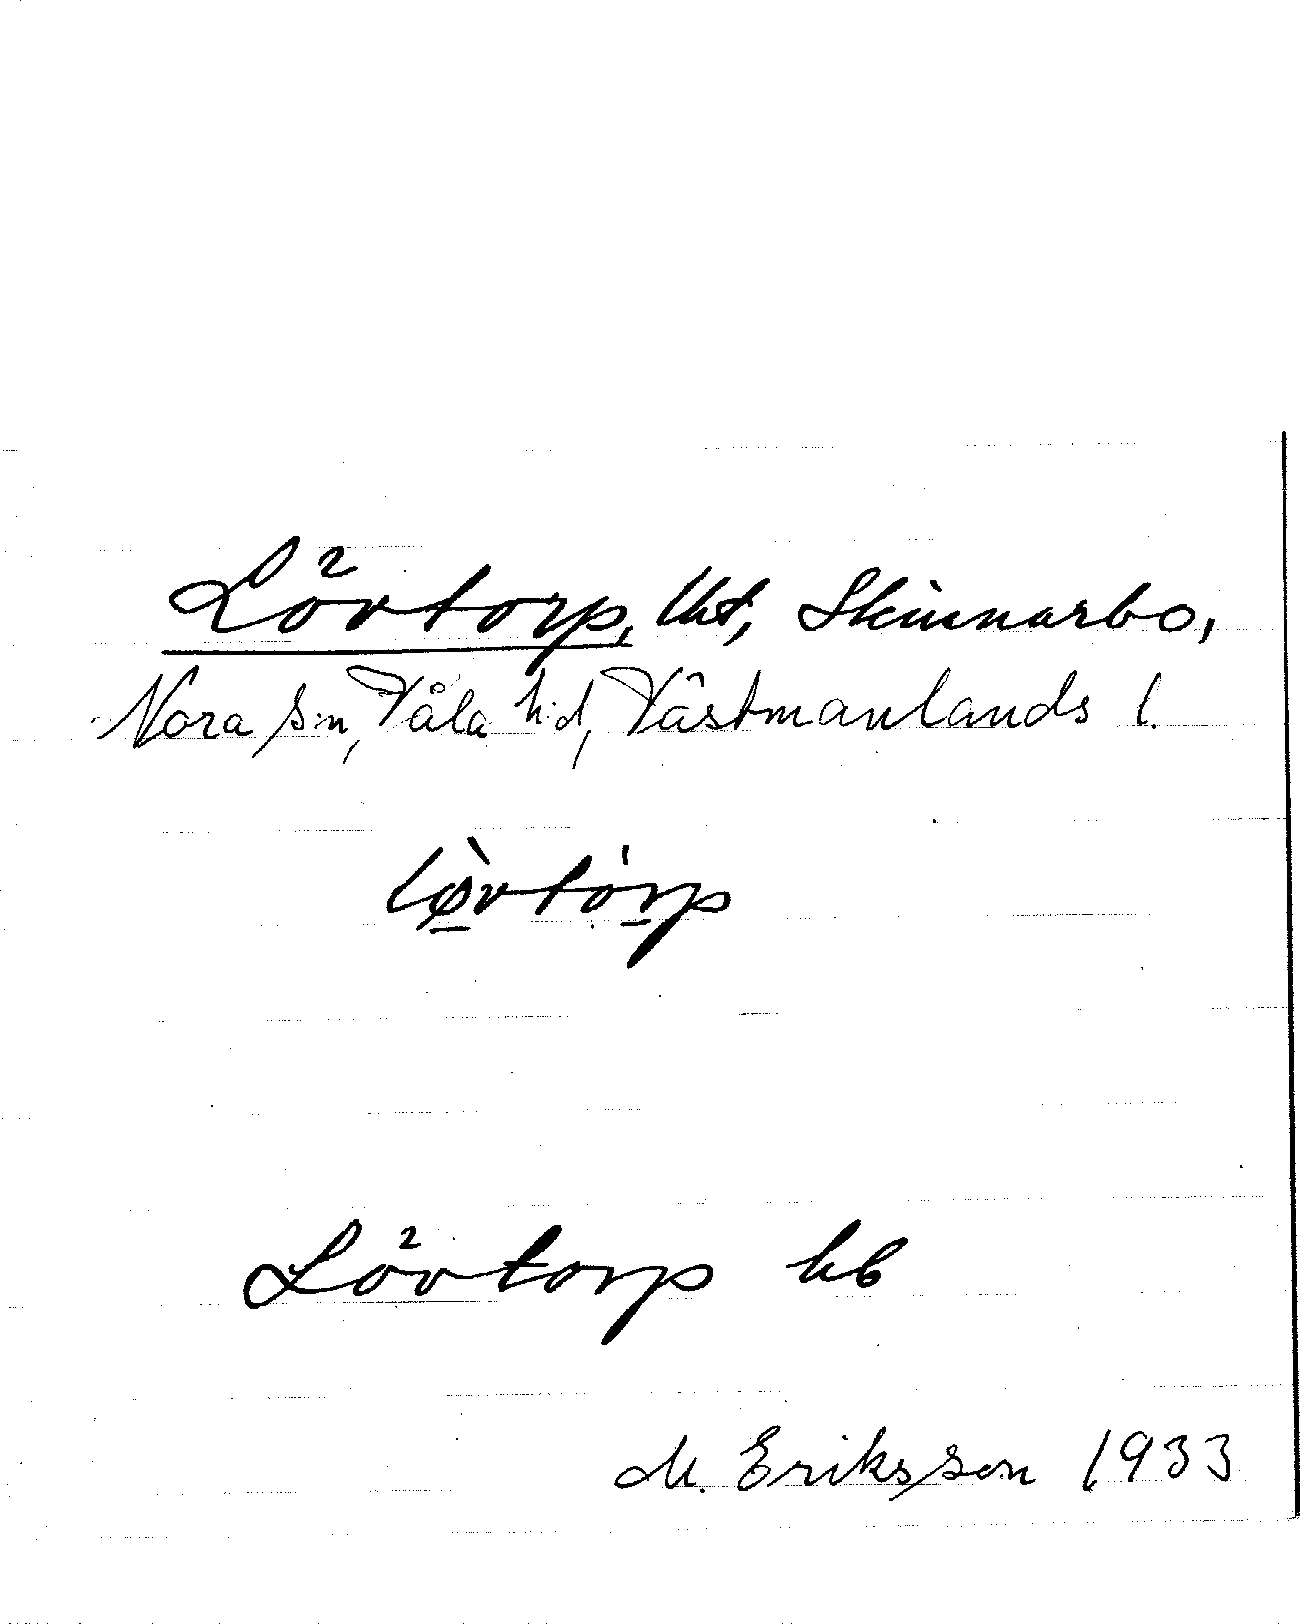 Lövtorp, lht, Skinnarbo,
Nora s:n, Våla h:d, Västmanlands l.
lø̀vtòrp
Lövtorp hb
M. Eriksson 1933